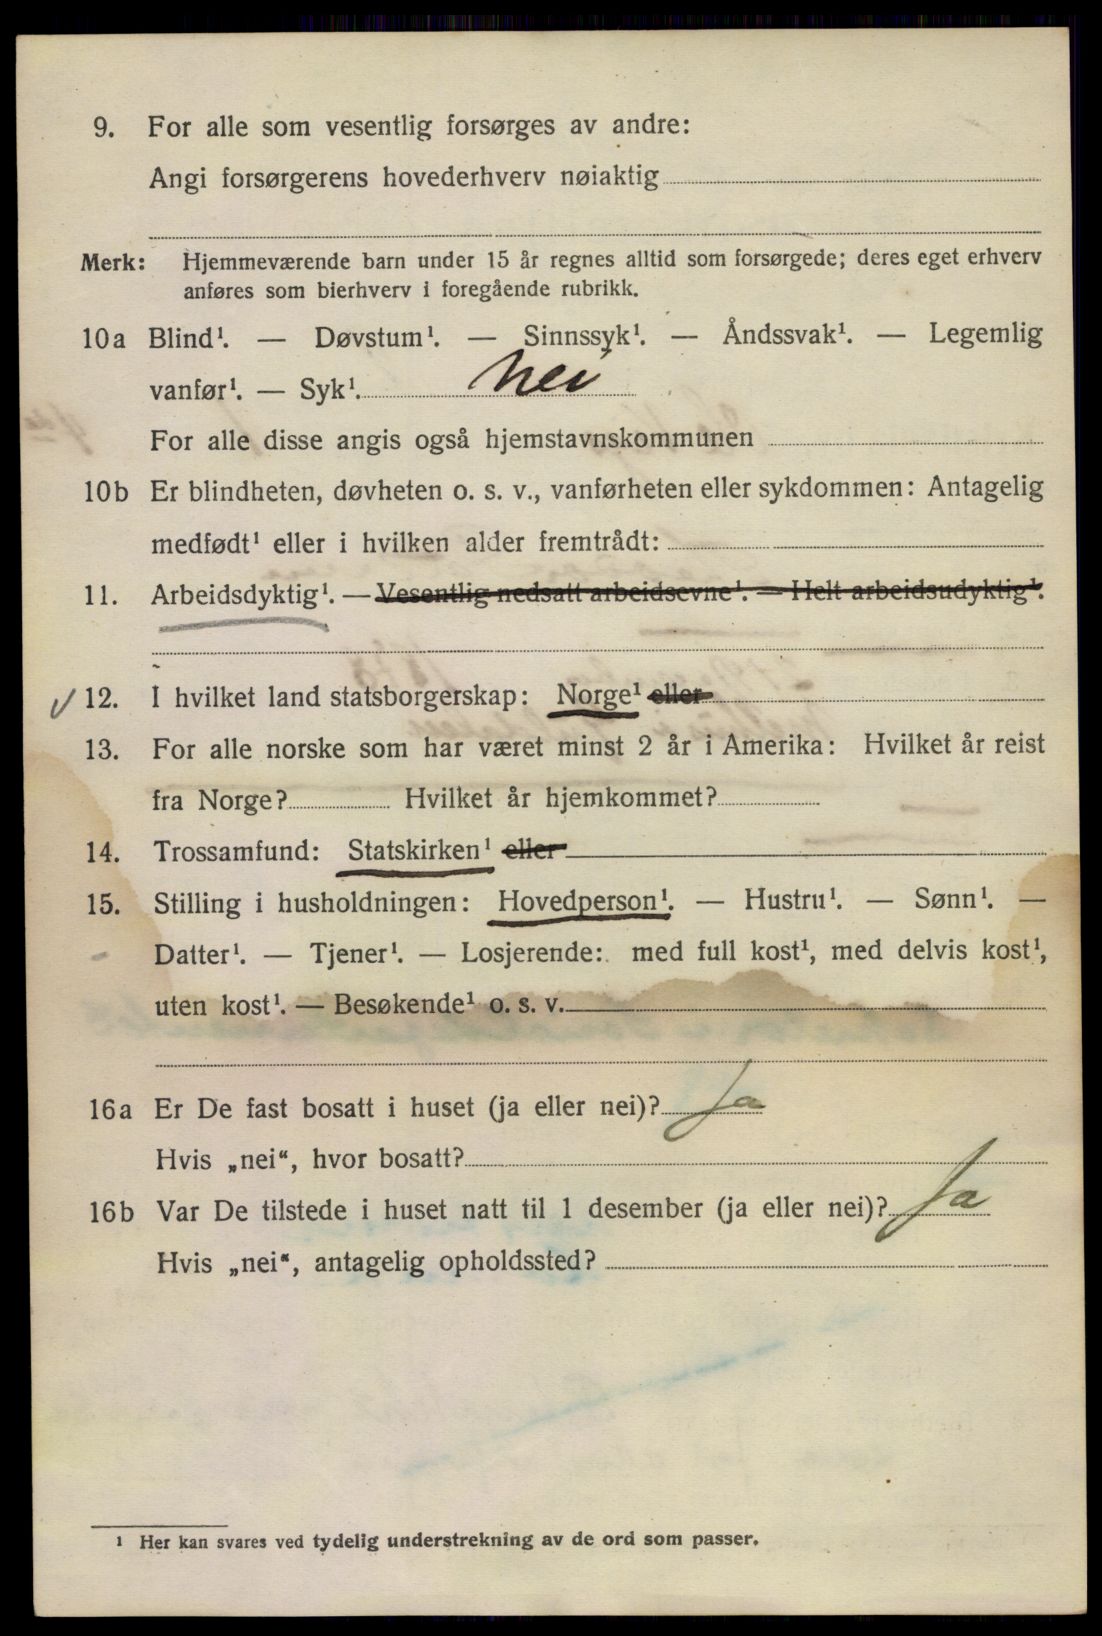 9. For alle som vesentlig forsørges av andre:
Angi forsørgerens hovederhverv nøiaktig
Merk: Hjemmeværende barn under 15 år regnes alltid som forsørgede; deres eget erhverv
anføres som bierhverv i foregående rubrikk.
10a Blind¹. — Døvstum¹. — Sinnssyk¹. — Åndssvak¹. — Legemlig
vanfør¹. — Syk¹. Nei
For alle disse angis også hjemstavnskommunen
10b Er blindheten, døvheten o. s. v., vanførheten eller sykdommen: Antagelig
medfødt¹ eller i hvilken alder fremtrådt:
11. Arbeidsdyktig¹. — Vesentlig nedsatt arbeidsevne¹. — Helt arbeidsudyktig¹.
12. I hvilket land statsborgerskap: Norge¹ eller
13. For alle norske som har været minst 2 år i Amerika: Hvilket år reist
fra Norge? Hvilket år hjemkommet?
14. Trossamfund: Statskirken¹ eller
15. Stilling i husholdningen: Hovedperson¹. — Hustru¹. — Sønn¹. —
Datter¹. — Tjener¹. — Losjerende: med full kost¹, med delvis kost¹,
uten kost¹. — Besøkende¹ o. s. v.
16a Er De fast bosatt i huset (ja eller nei)? Ja
Hvis „nei“, hvor bosatt?
16b Var De tilstede i huset natt til 1 desember (ja eller nei)? Ja
Hvis „nei“, antagelig opholdssted?
¹ Her kan svares ved tydelig understrekning av de ord som passer.